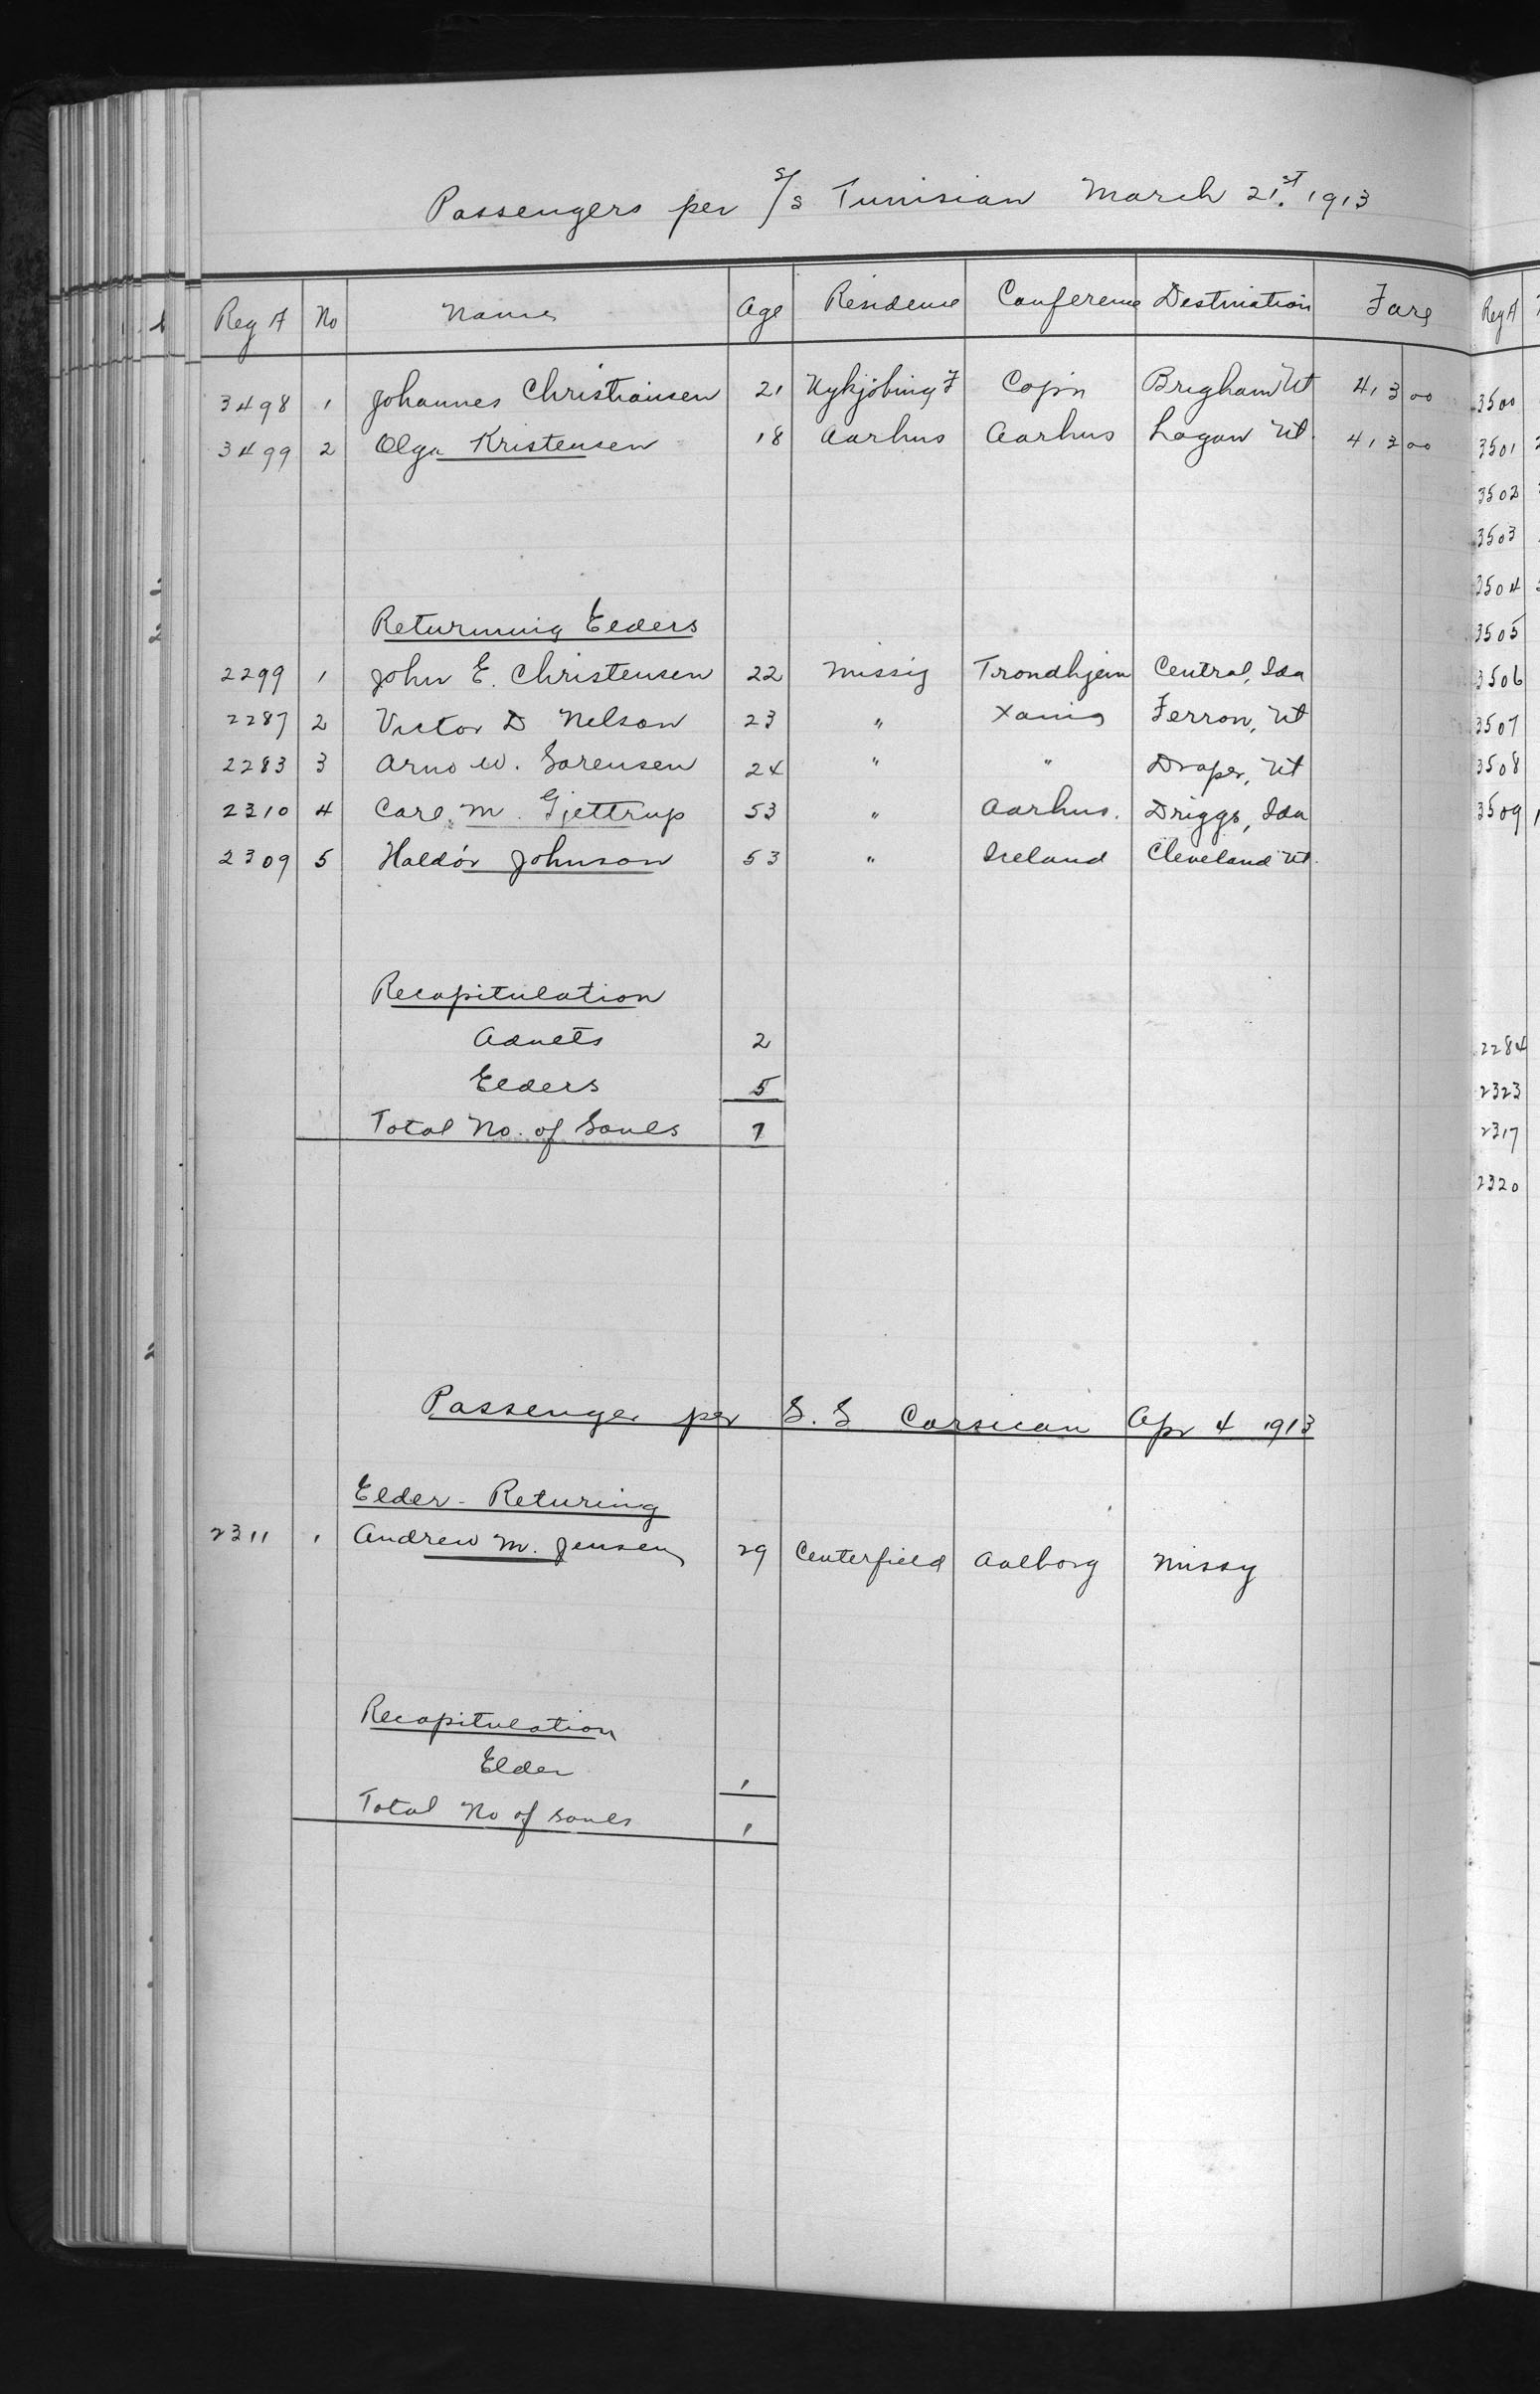 Passengers per S/S Tunisian March 21st. 1913
Reg A No Name Age Residence Conference Destination Fare
3498 1 Johannes Christiansen 21 Nykjöbing F Cop'n Brigham Ut 413 00
3499 2 Olga Kristensen 18 Aarhus Aarhus Logan Ut. 413 00
Returnning Elders
2299 1 John E. Christensen 22 Missig Trondhjem Central, Ida
2287 2 Victor D Nelson 23 " Ferron, Ut
2283 3 Arno W. Sorensen 24 " " Draper, Ut
2310 4 Carl M. Gjettrup 53 " Aarhus. Driggs, Ida
2309 5 Haldór Johnson 53 " Iceland Cleveland Ut.
Recapitulation
Adults 2
Elders 5
Total No. of Souls 7
Passenger per S. S Corsican Apr 4 1913
Elder - Returing
2311 1 Andrew M. Jensen 29 Centerfield Aalborg Missy
Recapitulation
Elder 1
Total No of souls 1
Reg A
3500
3501
3502
3503
3504
3505
3506
3507
3508
3509
2284
2323
2317
2320